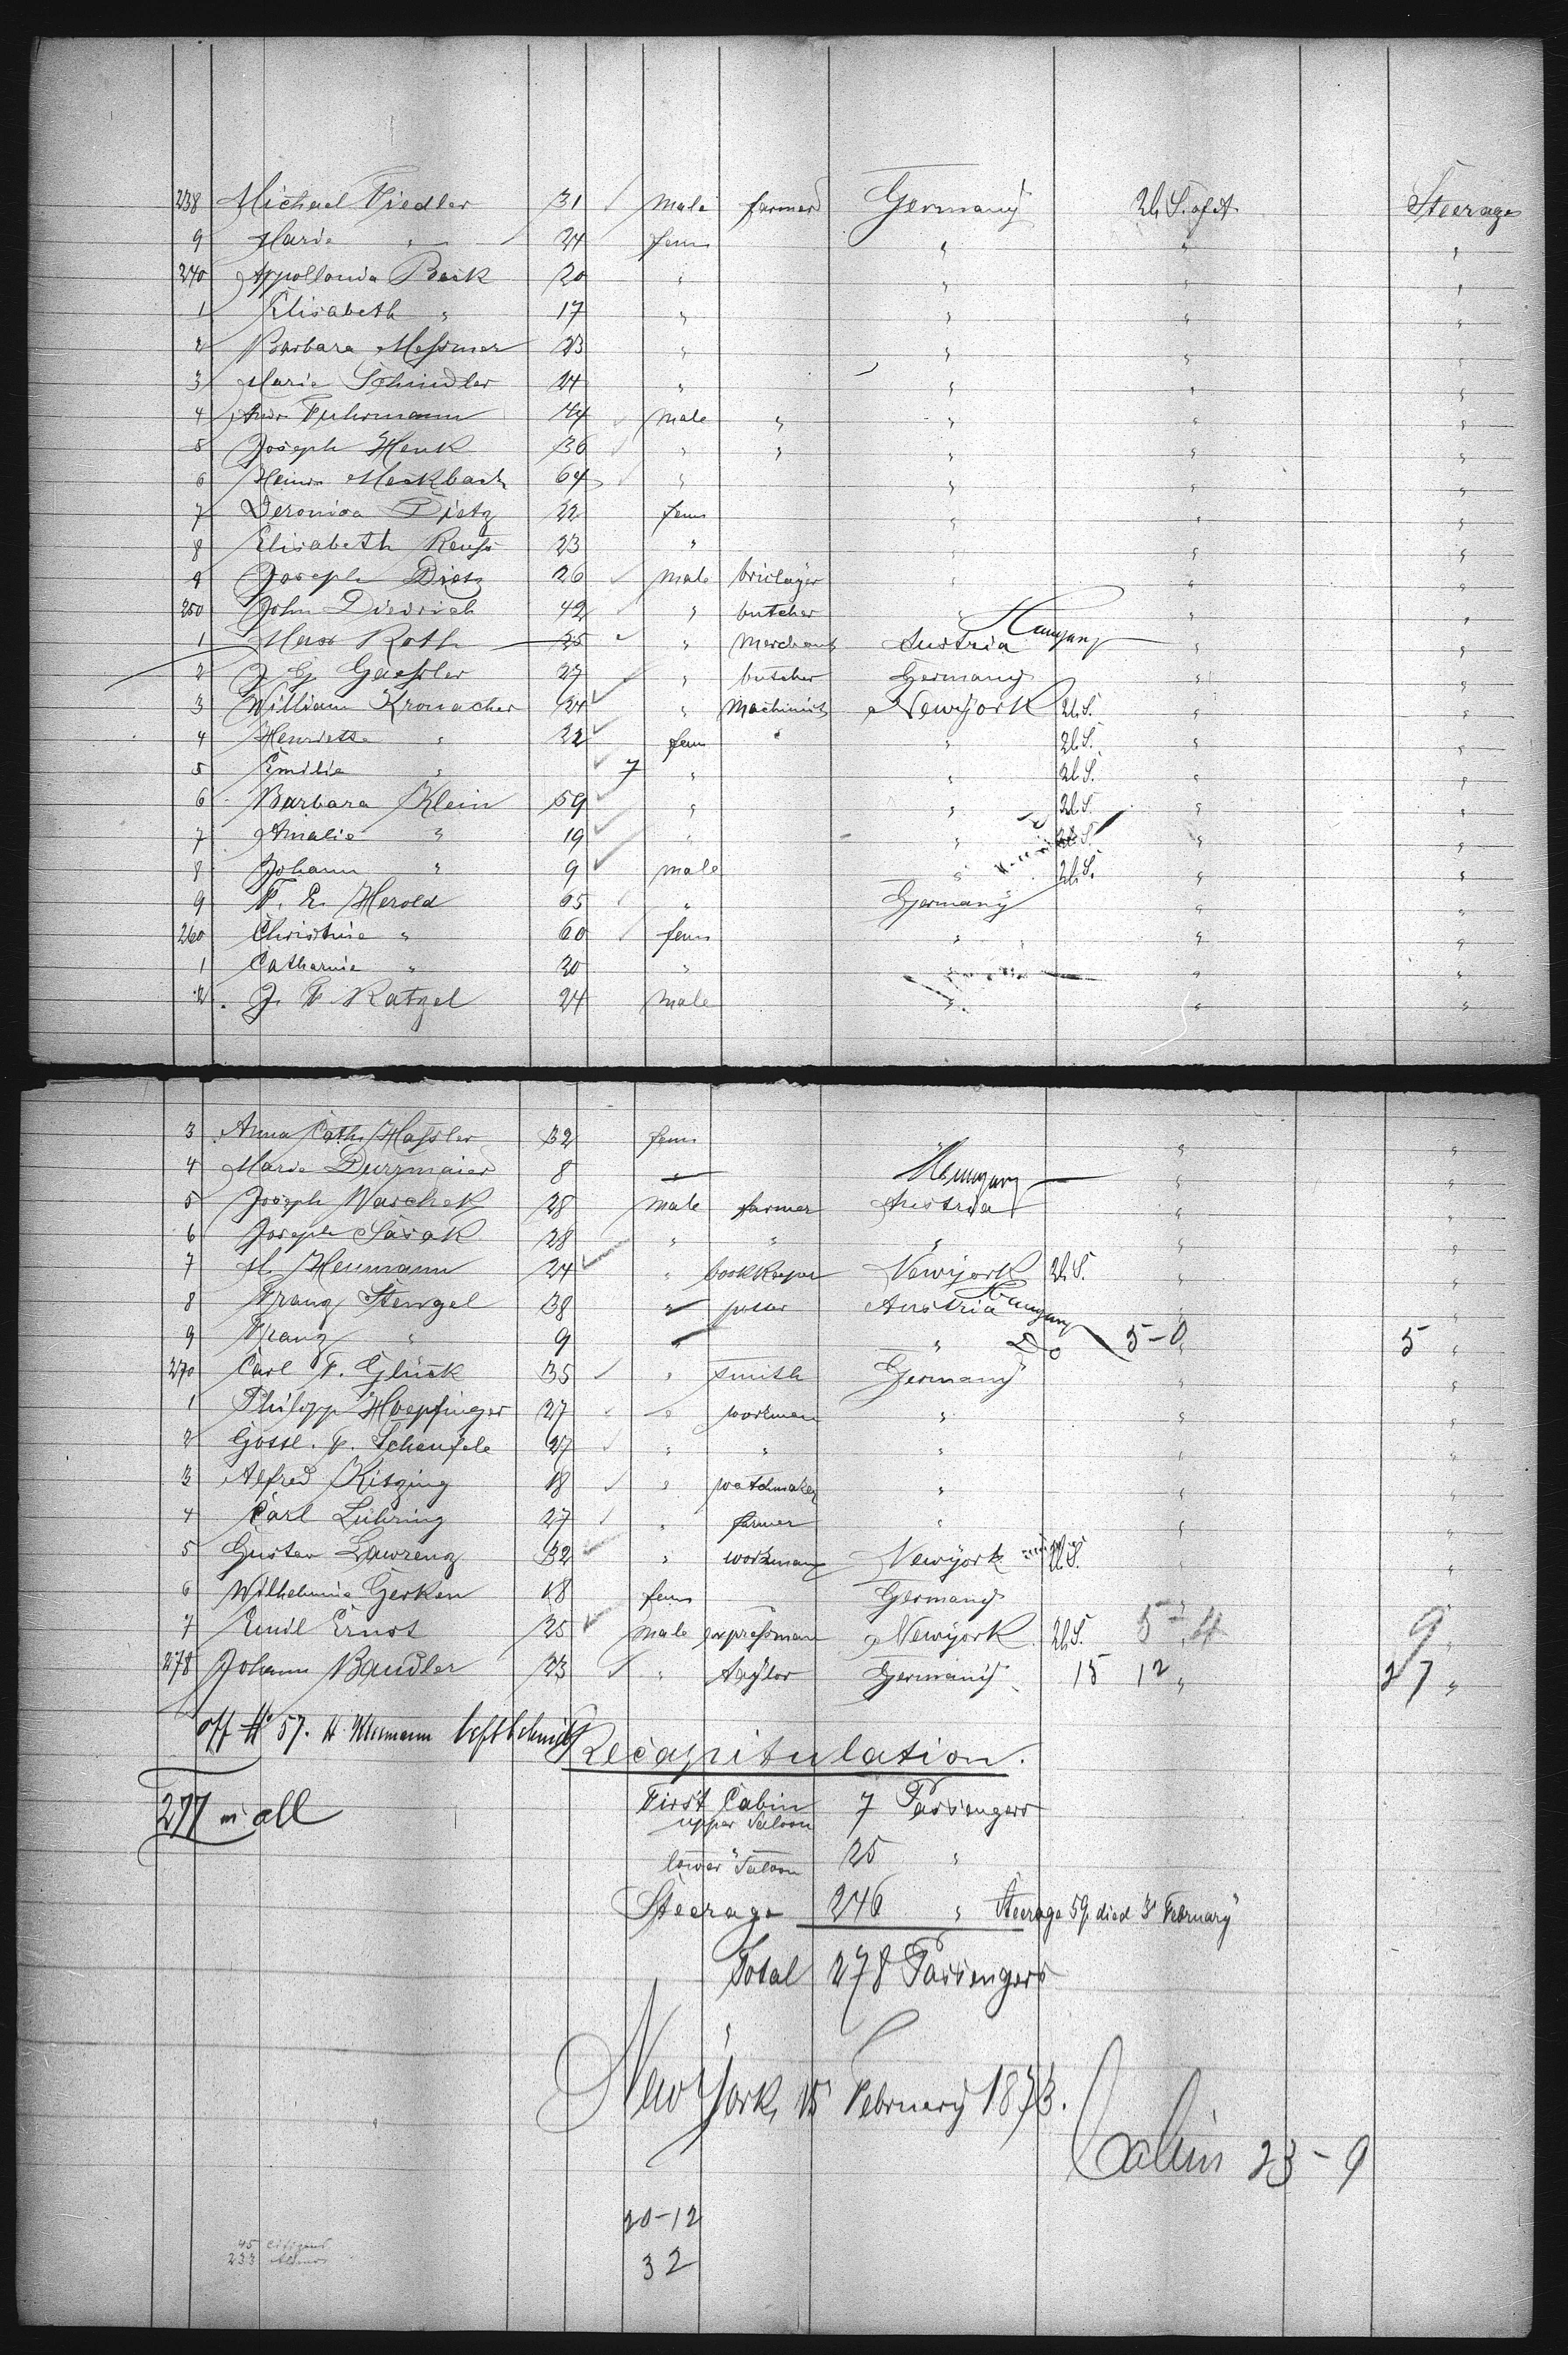 238 Michael Fiedler 31 male farmer Germany U. S. of A. Steerage
9 Marie " 24 fem " " "
240 Appollonia Beck 20 " " " "
1 Elisabeth " 17 " " " "
2 Barbara Messmer 23 " " " "
3 Marie Schindler 24 " " " "
4 Fuhrmann 44 male " " " "
5 Joseph Henk 36 " " " " "
6 Heinr Meckbach 64 " " " "
7 Veronica Dietz 22 fem " " "
8 Elisabeth Reuss 23 " " " "
9 Joseph Dietz 26 male briclayer " " "
250 John Diedrich 42 " butcher " " "
1 Max Roth 25 " Merchant Austria Hungary " "
2 J. G. Gaessler 27 " butcher Germany " "
3 William Kronacher 34 " Machinist Newyork U. S. " "
4 Henriette " 32 fem " U. S. " "
5 Emilie " 7 " " U. S. " "
6 Barbara Klein 59 " " U. S. " "
7 Amalie " 19 " " U. S. " "
8 Johann " 9 male " U. S. " "
9 F. E. Herold 65 " Germany " "
260 Christine " 60 fem " " "
1 Catharine " 20 " " "
2 J. F. Ratzel 24 male " " "
3 Anna Cath. Hassler 32 fem " " "
4 Marie Durrmaier 8 " " "
Hungary
5 Joseph Waschek 28 male farmer Austria " "
6 Joseph Sasak 28 " " " " "
7 M. Heumann 24 " bookkeeper Newyork U. S. " "
8 Franz Stengel 38 " Austria Hungary " "
9 Franz " 9 " " Do 5-0 " 5 "
270 Carl F. Glück 35 " smith Germany " "
1 Philipp Hoepfinger 27 " workman " " "
2 Gottl. F. Schaufele 27 " " " " "
3 Alfred Kitzing 18 " watchmaker " " "
4 Carl Lühring 27 " farmer " " "
5 Gustav Lawrenz 32 " workman Newyork U. S. " "
6 Wilhelmine Gerken 18 fem Germany " "
7 Emil Ernst 25 male expressman Newyork U. S. 5-4 9 "
278 Johann Baudler 23 " taylor Germany 15 12 " 27 "
off No 57.
Recapitulation.
277 in all
First Cabin 7 Passengers
upper Saloon
lower Saloon 25 "
Steerage 246 " Steerage 59 died 3 February
Total 278 Passengers
New York, 15 February 1873.
Cabin 23-9
20-12
45 citizens
233 aliens
32